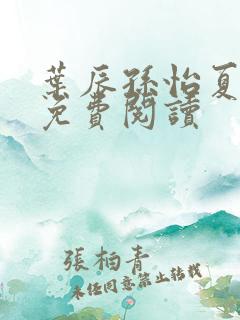 葉辰孫怡夏
免費閱讀
張栢青
未經同意禁止轉載